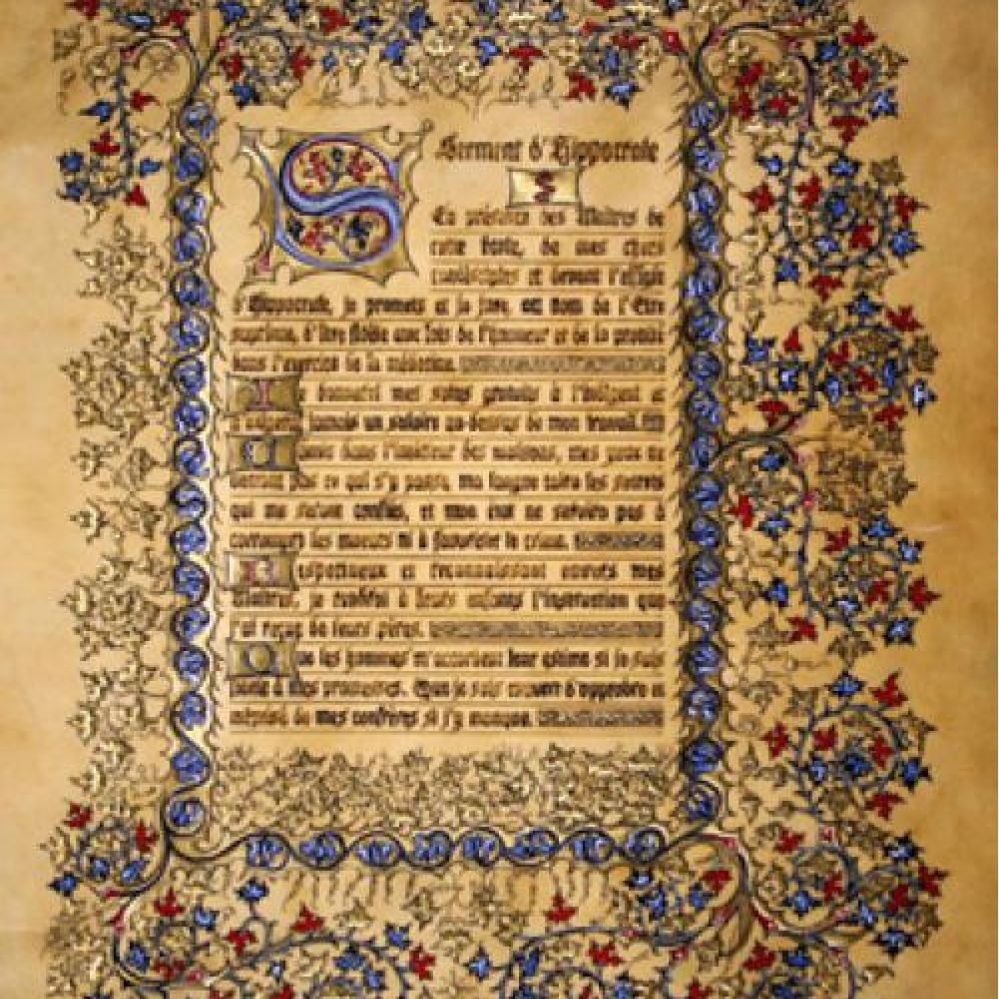 Serment d'Hippocrate
S
En présence des Maîtres de
cette école, de mes chers
condisciples et devant l'effigie
d'Hippocrate, je promets et je jure, au nom de l'Etre
suprême, d'être fidèle aux lois de l'honneur et de la probité
dans l'exercice de la médecine.
Je donnerai mes soins gratuits à l'indigent et
n'exigerai jamais un salaire au-dessus de mon travail.
Admis dans l'intérieur des maisons, mes yeux ne
verront pas ce qui s'y passe, ma langue taira les secrets
qui me seront confiés, et mon état ne servira pas à
corrompre les moeurs ni à favoriser le crime.
Respectueux et reconnaissant envers mes
Maîtres, je rendrai à leurs enfants l'instruction que
j'ai reçue de leurs pères.
Que les hommes m'accordent leur estime si je suis
fidèle à mes promesses. Que je sois couvert d'opprobre et
méprisé de mes confrères si j'y manque.